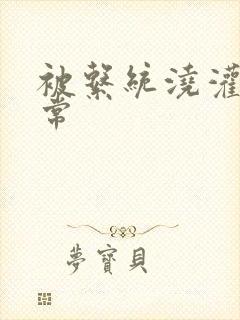 被繫統澆灌
常
夢寶貝